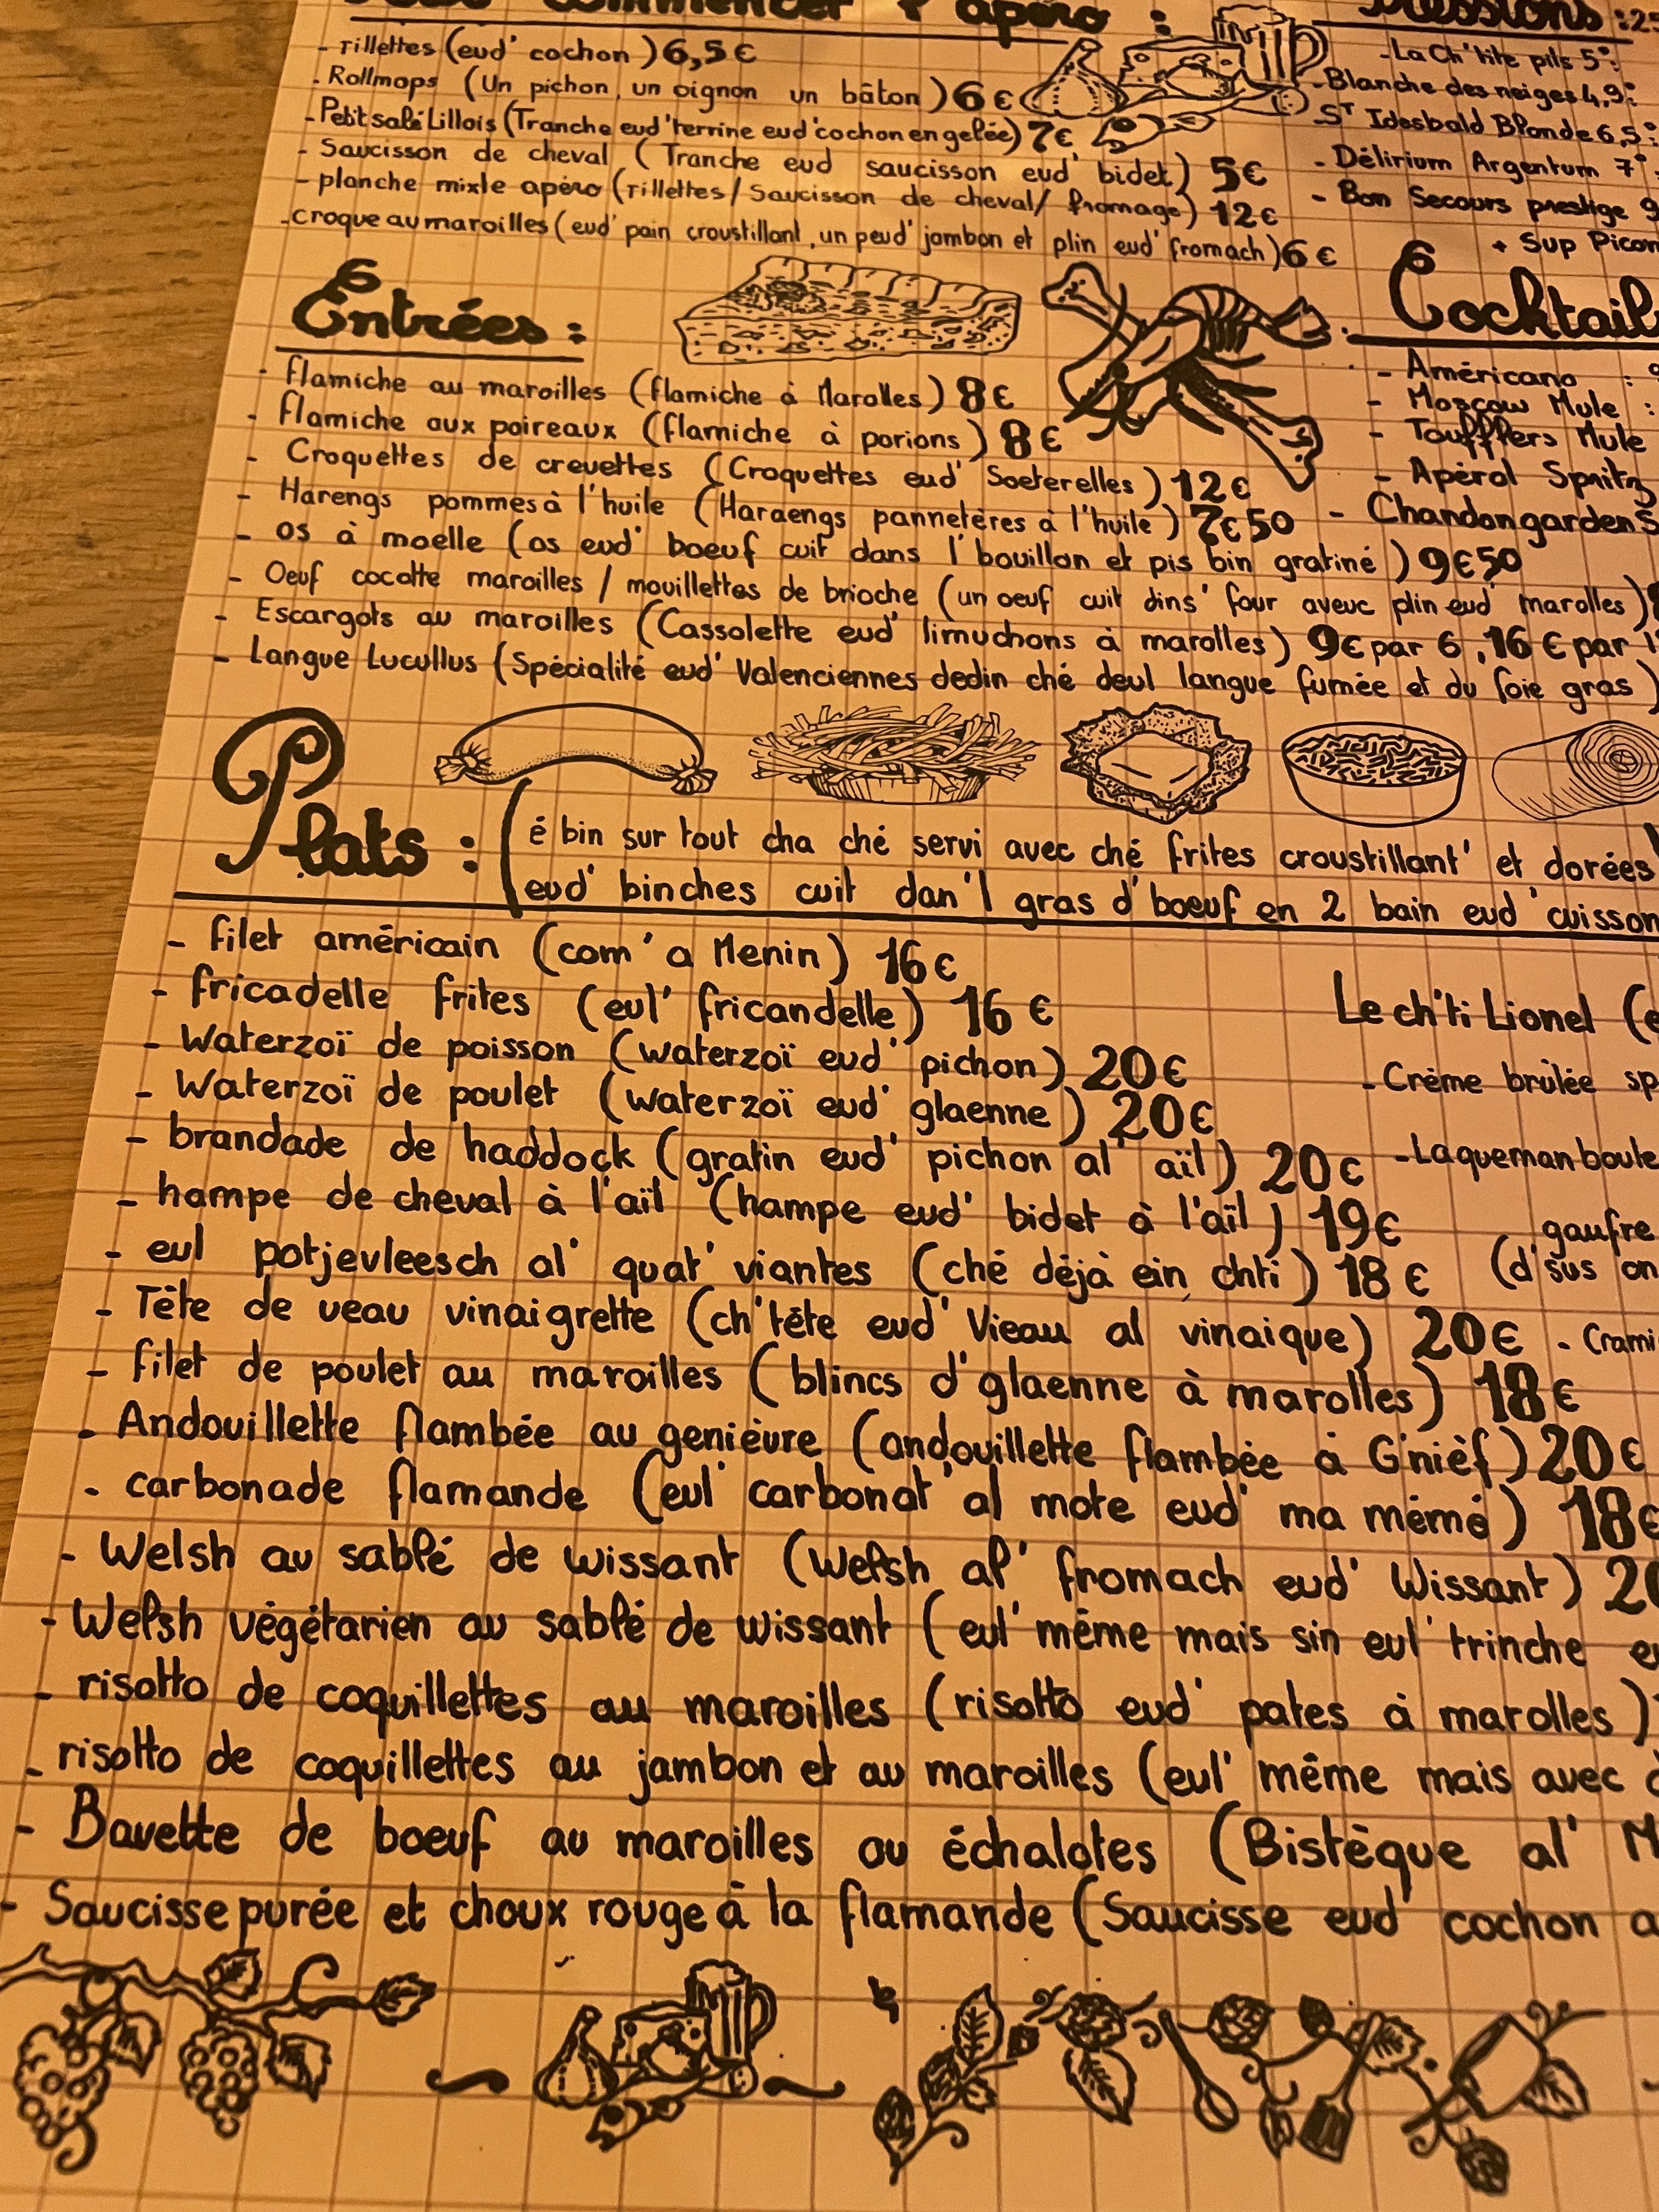 commencer l'apéro :
- rillettes (eud' cochon) 6,5€
- Rollmops (Un pichon, un oignon un bâton) 6€
- Petit salé Lillois (Tranche eud' terrine eud' cochon en gelée) 7€
- Saucisson de cheval (Tranche eud saucisson eud' bidet) 5€
- planche mixte apéro (rillettes/Saucisson de cheval/ fromage) 12€
- croque au maroilles (eud' pain croustillant, un peud' jambon et plin eud' fromach) 6€
Pressions :
- La Ch'tite pils 5°:
- Blanche des neiges 4,9°:
- St Idesbald Blonde 6,5°:
- Délirium Argentum 7°
- Bon Secours prestige 9
+ Sup Picon
Entrées :
- flamiche au maroilles (flamiche à Marolles) 8€
- flamiche aux poireaux (flamiche à porions) 8€
- Croquettes de crevettes (Croquettes eud' Soeterelles) 12€
- Harengs pommes à l'huile (Haraengs pannetères à l'huile) 7€50
- os à moelle (os eud' boeuf cuit dans l'bouillon et pis bin gratiné) 9€50
- Oeuf cocotte maroilles / mouillettes de brioche (un oeuf cuit dins' four aveuc plin eud' marolles)
- Escargots au maroilles (Cassolette eud' limuchons à marolles) 9€ par 6, 16€ par 1
- Langue Lucullus (Spécialité eud' Valenciennes dedin ché deul langue fumée et du foie gras)
Cocktail
- Américano :
- Moscow Mule :
- Toufflers Mule
- Apérol Spritz
- Chandon garden S
Plats : (é bin sur tout cha ché servi avec ché frites croustillant' et dorées
eud' binches cuit dan'l gras d'boeuf en 2 bain eud' cuisson
- filet américain (com' a Menin) 16€
- fricadelle frites (eul' fricandelle) 16€
- Waterzoï de poisson (waterzoï eud' pichon) 20€
- Waterzoï de poulet (waterzoï eud' glaenne) 20€
- brandade de haddock (gratin eud' pichon al' aïl) 20€
- hampe de cheval à l'aïl (hampe eud' bidet à l'aïl) 19€
- eul potjevleesch al' quat' viantes (ché déjà ein chti) 18€
- Tête de veau vinaigrette (ch'tête eud' Vieau al vinaique) 20€
- filet de poulet au maroilles (blincs d'glaenne à marolles) 18€
- Andouillette flambée au genièvre (andouillette flambée à G'nièf) 20€
- carbonade flamande (eul' carbonat' al mote eud' ma mémé) 18€
- Welsh au sablé de wissant (Welsh al' fromach eud' Wissant) 20
- Welsh végétarien au sablé de wissant (eul' même mais sin eul' trinche
- risotto de coquillettes au maroilles (risotto eud' pates à marolles)
- risotto de coquillettes au jambon et au maroilles (eul' même mais avec
- Bavette de boeuf au maroilles ou échalotes (Bistèque al' M
- Saucisse purée et choux rouge à la flamande (Saucisse eud' cochon a
Le ch'ti Lionel (e
- Crème brûlée sp
- Laqueman boule
gaufre
(d'sus on
- Crami